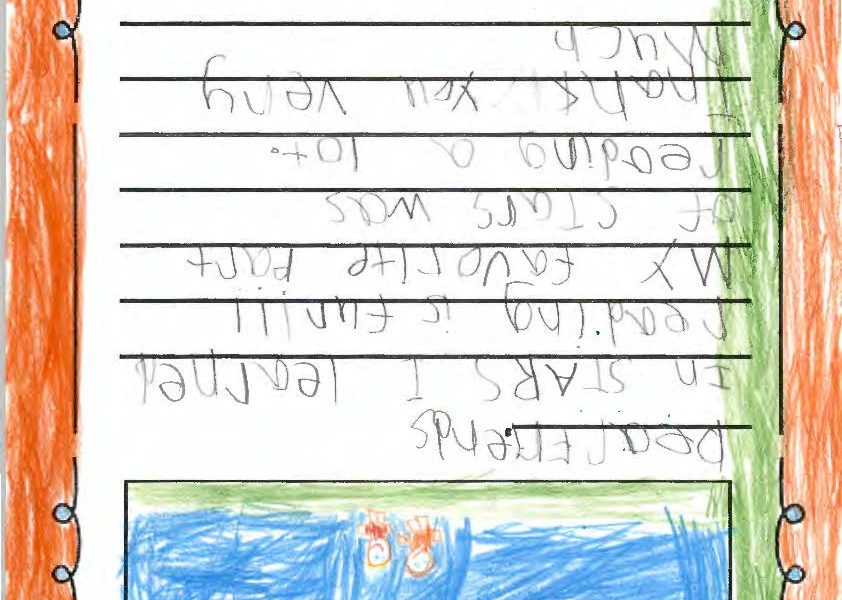 Dear Friends
In STARS I learned
reading is fun!!!
My favorite part
of stars was
reading a lot.
Thank you very
Much